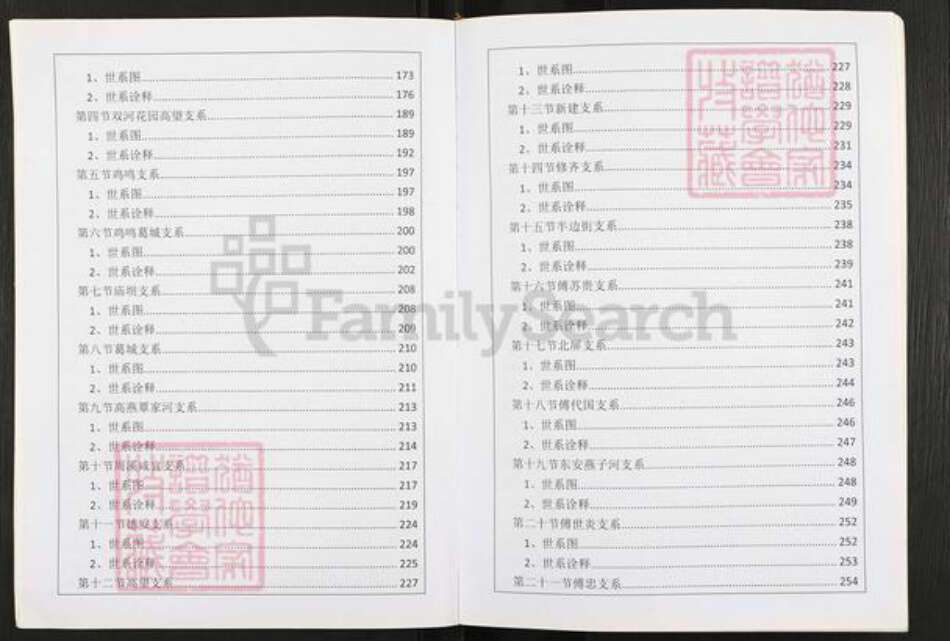 1、世系图 173
2、世系诠释 176
第四节双河花园高望支系 189
1、世系图 189
2、世系诠释 192
第五节鸡鸣支系 197
1、世系图 197
2、世系诠释 198
第六节鸡鸣葛城支系 200
1、世系图 200
2、世系诠释 202
第七节庙坝支系 208
1、世系图 208
2、世系诠释 209
第八节葛城支系 210
1、世系图 210
2、世系诠释 211
第九节高燕覃家河支系 213
1、世系图 213
2、世系诠释 214
第十节周溪咸宜支系 217
1、世系图 217
2、世系诠释 219
第十一节 支系 224
1、世系图 224
2、世系诠释 225
第十二节高望支系 227
1、世系图 227
2、世系诠释 228
第十三节新建支系 229
1、世系图 229
2、世系诠释 231
第十四节修齐支系 234
1、世系图 234
2、世系诠释 235
第十五节半边街支系 238
1、世系图 238
2、世系诠释 239
第十六节傅苏贵支系 241
1、世系图 241
2、世系诠释 242
第十七节北屏支系 243
1、世系图 243
2、世系诠释 244
第十八节傅代国支系 246
1、世系图 246
2、世系诠释 247
第十九节东安燕子河支系 248
1、世系图 248
2、世系诠释 249
第二十节傅世炎支系 252
1、世系图 252
2、世系诠释 253
第二十一节傅忠支系 254
FamilySearch